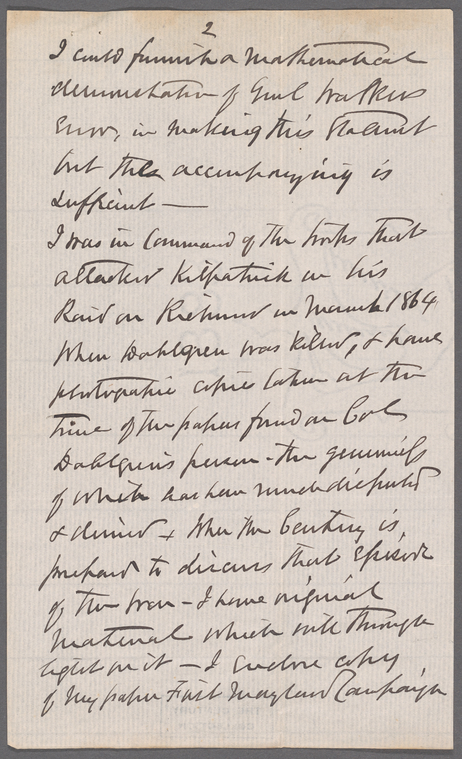 2
I could furnish a Mathematical
demonstration of Genl Walkers
Error, in making this Statemt
but the accompanying is
Sufficient —
I was in Command of the troops that
attacked Kilpatrick in his
Raid on Richmd in March 1864
When Dahlgren was killed, & have
photographic copies taken at the
time of the papers found on Col
Dahlgren's person - the genuiness
of which has been much disputed
& denied & When the Century is
prepared to discuss that Episode
of the War - I have original
Material which will through
light on it — I Enclose copy
of My paper First Maryland Campaign